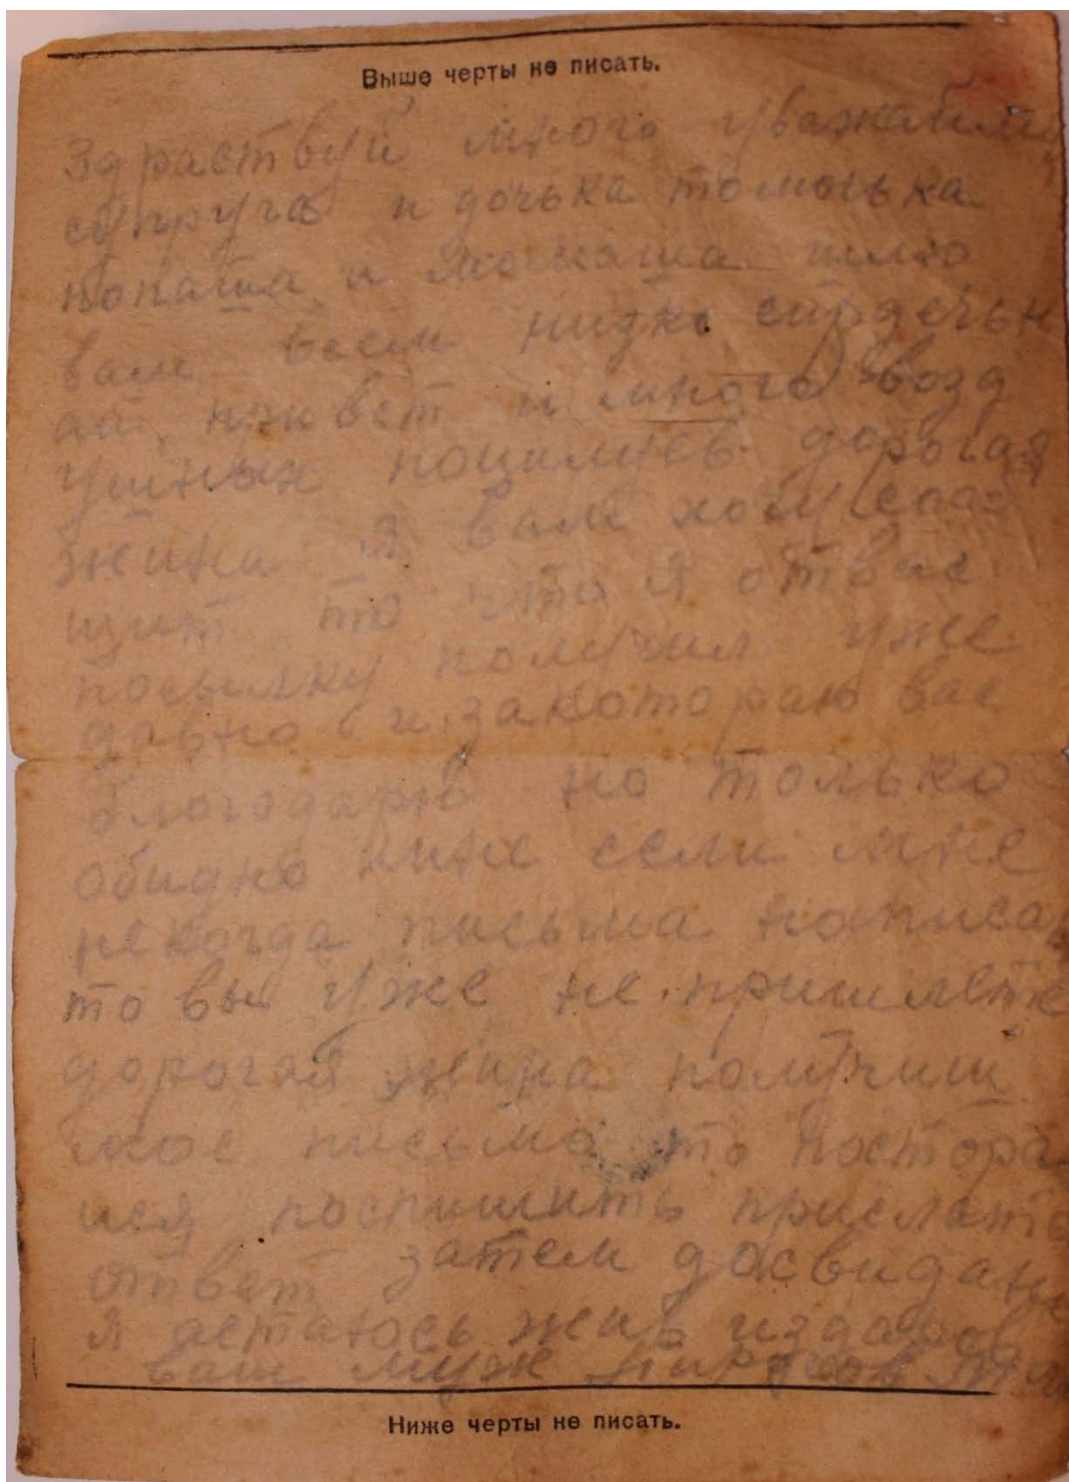 Выше черты не писать.
Здраствуй много уважаимая
супруга и дочька томочька
попаша и момаша шлю
вам всем низко сирдечьн
ай привет и много возд
ушных поцилуев дорогая
жина я вам хочу сооб
щит то что я отвас
посылку получил уже
давно и закотораю вас
благодарю но только
обидно мне если мне
некогда письма написат
то вы уже не пришлете
дорогая жина получиш
мое письмо то постора
ися поспишить прислать
ответ затем досвидане
я астаюсь жив издаров
ваш муж
Ниже черты не писать.